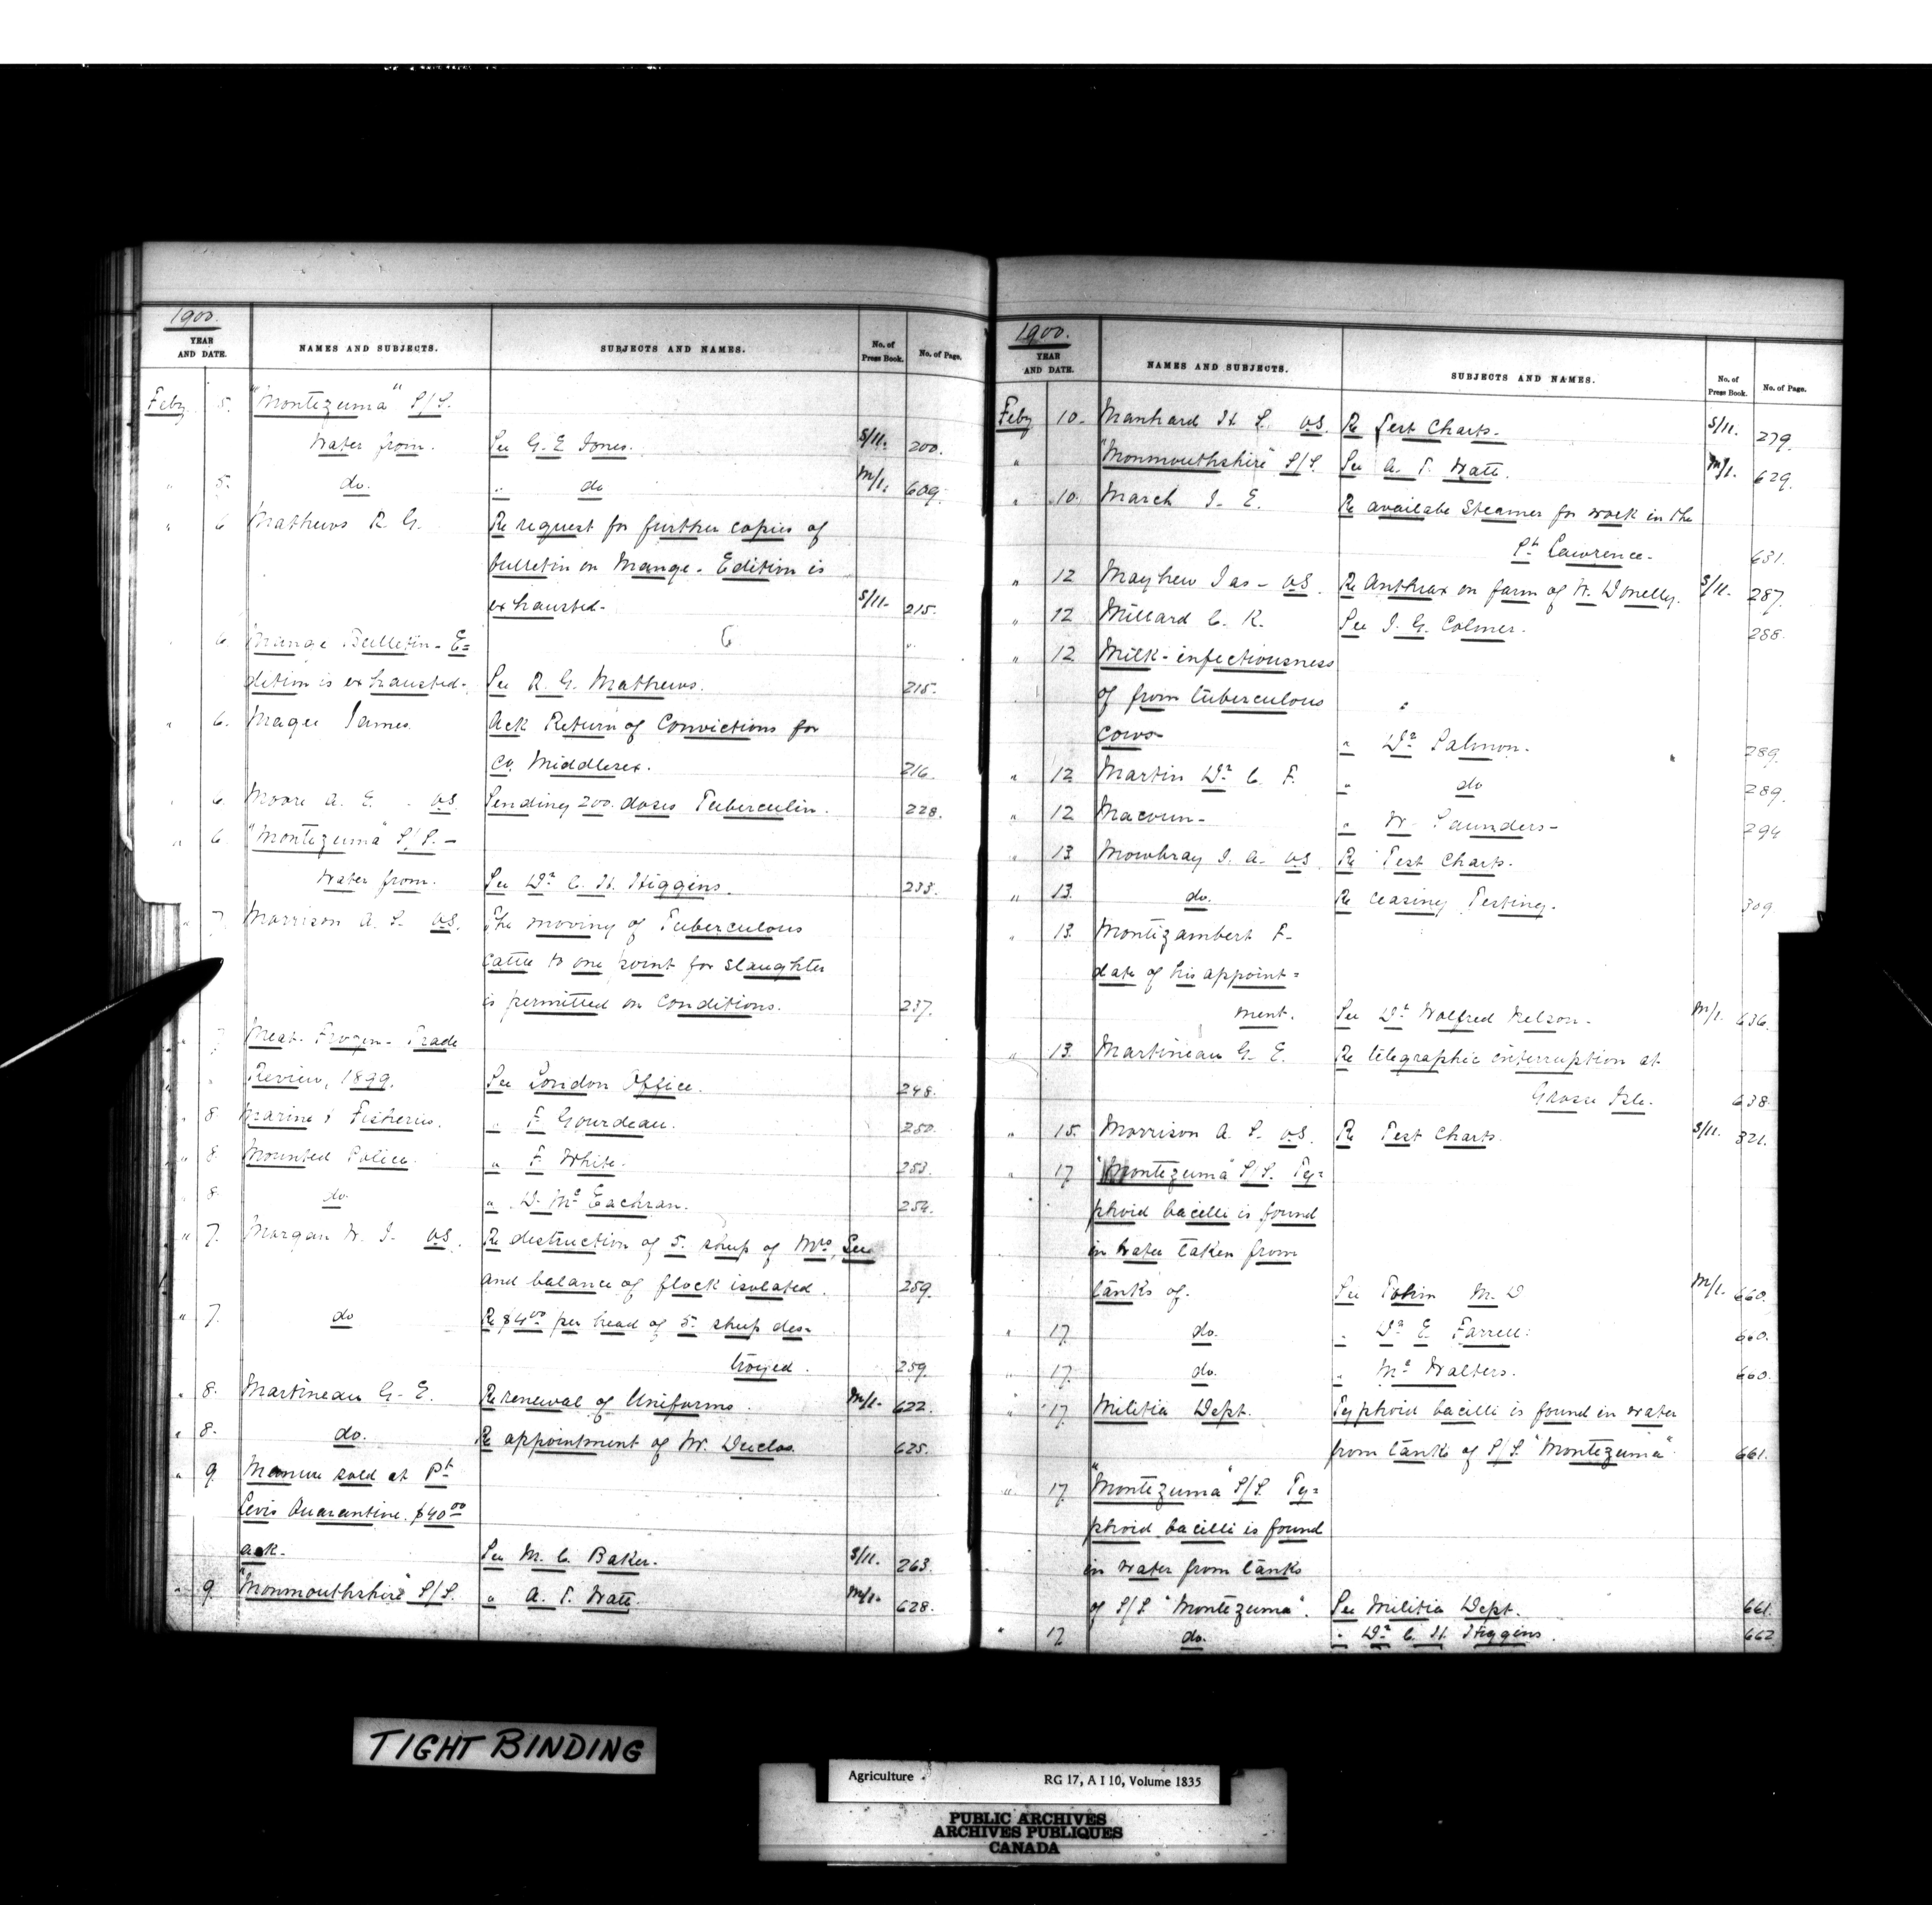 1900.
YEAR AND DATE. NAMES AND SUBJECTS. SUBJECTS AND NAMES. No. of Press Book. No. of Page.
Feby 5. "Montezuma" S/S.
Water from. See G. E. Jones. S/11. 200.
" 5. do. " do M/1. 609.
" 6 Mathews R. G. Re request for further copies of
bulletin on Mange. Edition is
exhausted. S/11. 215.
" 6. Mange Bulletin - E=
dition is exhausted. See R. G. Mathews. 215.
" 6. Magee James. Ack Return of Convictions for
Co. Middlesex. 216.
" 6. Moore A. E. VS. Sending 200. doses Tuberculin. 228.
" 6. "Montezuma" S/S. -
Water from. See Dr. C. H. Higgins. 233.
" 7. Morrison A. S. VS. The moving of Tuberculous
cattle to one point for slaughter
is permitted on conditions. 237.
" 7 Meat. Frozen - Trade
Review, 1899. See London Office. 248.
" 8 Marine & Fisheries. " F. Gourdeau. 250.
" 8. Mounted Police. " F. White. 253.
" 8. do " D. McEachran. 254.
" 7. Morgan W. J. VS. Re destruction of 5. sheep of Mrs. Lee
and balance of flock isolated. 259.
" 7. do Re $4.00 per head of 5. sheep des-
troyed. 259.
" 8. Martineau G. E. Re renewal of Uniforms. M/1. 622.
" 8. do. Re appointment of W. Duclos. 625.
" 9. Manure sold at Pt.
Levis Quarantine. $40.00
ack. See M. C. Baker. S/11. 263.
" 9. "Monmouthshire" S/S. " A. T. Watt. M/1. 628.
1900.
YEAR AND DATE. NAMES AND SUBJECTS. SUBJECTS AND NAMES. No. of Press Book. No. of Page.
Feby 10. Manhard H. S. VS. Re Test Charts. S/11. 279.
" "Monmouthshire" S/S. See A. T. Watt. M/1. 629.
" 10. March J. E. Re availabe Steamer for work in the
St. Lawrence. 631.
" 12 Mayhew Jas - VS. Re Anthrax on farm of W. Donelly. S/11. 287.
" 12 Millard C. K. See J. G. Colmer. 288.
" 12 Milk - infectiousness
of from tuberculous
cows- " Dr. Salmon. 289.
" 12 Martin Dr. C. F. " do 289.
" 12 Macoun- " W. Saunders- 294
" 13 Mowbray J. A. VS. Re Test Charts.
" 13. do. Re ceasing Testing. 309
" 13. Montizambert F-
date of his appoint=
ment. See Dr. Wolfred Nelson. M/1. 636.
" 13. Martineau G. E. Re telegraphic interruption at
Grosse Isle. 638.
" 15. Morrison A. S. VS. Re Test Charts. S/11. 321.
" 17 "Montezuma" S/S. Ty=
phoid bacilli is found
in water taken from
tanks of. See Tobin M. D M/1. 660.
" 17 do. " Dr. E. Farrell. 660.
" 17. do. " Mr. Walters. 660.
" 17 Militia Dept. Typhoid bacilli is found in water
from tanks of S/S. "Montezuma". 661.
" 17. "Montezuma" S/S. Ty=
phoid bacilli is found
in water from tanks
of S/S. "Montezuma". See Militia Dept. 661.
" 17 do. " Dr. C. H. Higgins. 662
TIGHT BINDING
Agriculture RG 17, A I 10, Volume 1835
PUBLIC ARCHIVES
ARCHIVES PUBLIQUES
CANADA